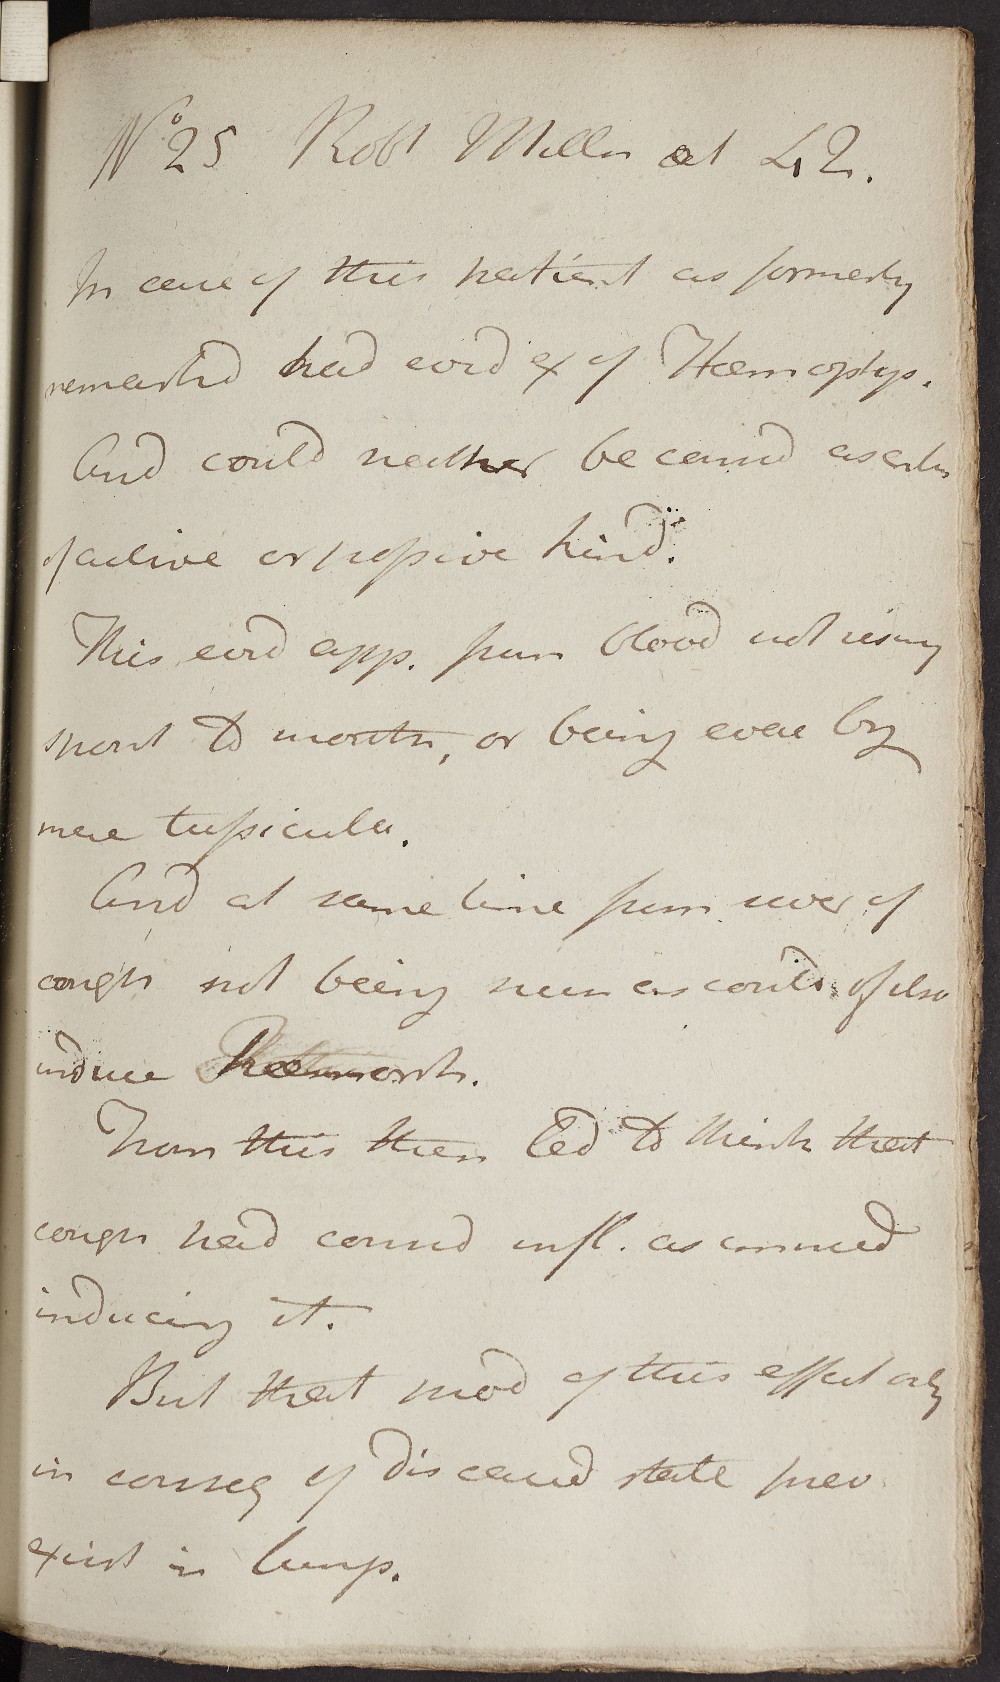 No 25 Robt Miller aet 42.
In case of this patient as formerly
remarkd had evid ex of Haemoptys.
And could neither be consid as either
of active or passive kind.
This evid app. from blood not rising
spont to mouth, or being evac by
mere tussicula.
And at same time from sever of
cough not being such as could of itself
induce Haemorrh.
From this then led to think that
cough had consid infl. as
inducing it.
But that prod of this effect only
in conseq of diseased state prev
exist in lungs.